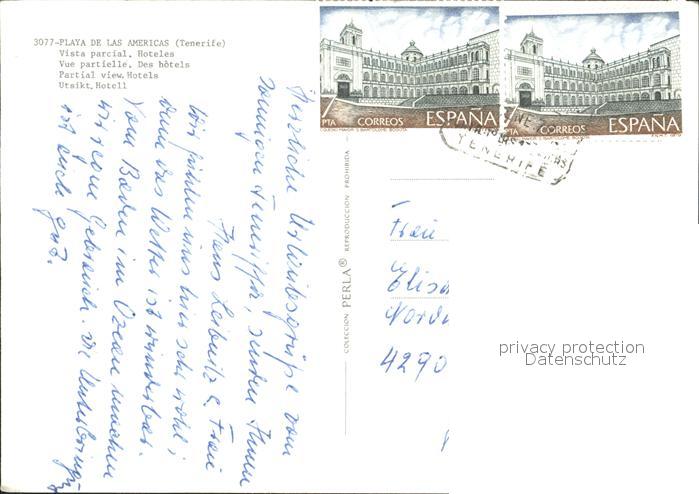 3077-PLAYA DE LAS AMERICAS (Tenerife)
Vista parcial, Hoteles
Vue partielle, Des hôtels
Partial view, Hotels
Utsikt, Hotell
Herzliche Urlaubsgrüße vom
sonnigen Teneriffa, senden Ihnen
Hans Leibnitz & Frau
Wir fühlen uns hier sehr wohl,
denn das Wetter ist wunderbar.
Vom Baden im Ozean machen
wir rege Gebrauch. Die Unterbringung
ist auch gut.
COLECCION PERLA® REPRODUCCION PROHIBIDA
PTA CORREOS ESPAÑA
COLEGIO MAYOR S. BARTOLOME. BOGOTA
PTA CORREOS ESPAÑA
TENERIFE
Frau
Elisa
Nordw
4290
privacy protection
Datenschutz